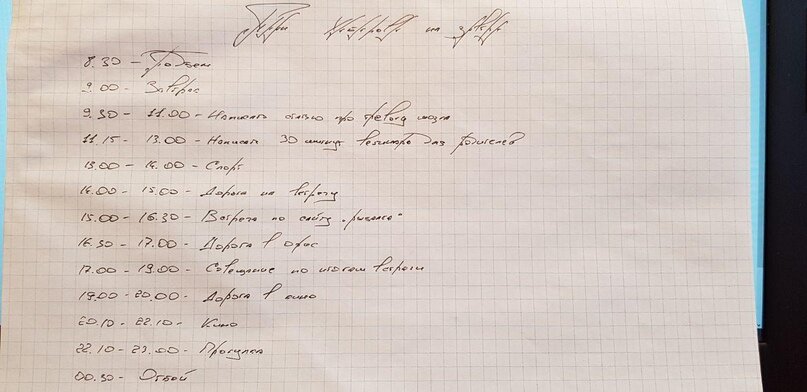 8.30 - Подъем
9.00 - Завтрак
9.30 - 11.00 - Написать статью про reborg мозга
11.15 - 13.00 - Написать 30 минут для родителей
13.00 - 14.00 - Спорт
14.00 - 15.00 - Дорога на встречу
15.00 - 16.30 - Встреча по сайту "рыбалка"
16.30 - 17.00 - Дорога в офис
17.00 - 19.00 - Совещание по итогам встречи
19.00 - 20.00 - Дорога в кино
20.10 - 22.10 - Кино
22.10 - 23.00 - Прогулка
00.30 - Отбой